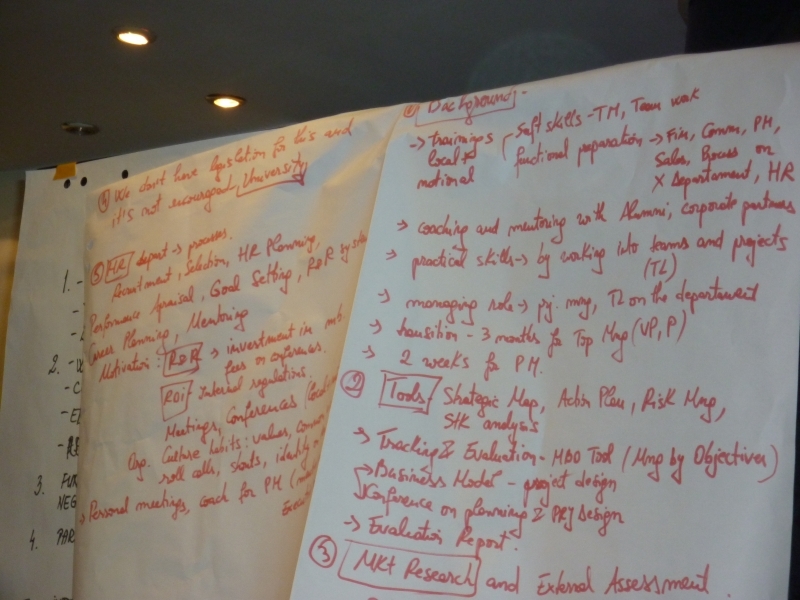 1. -
2. -
3. FUN
NEG
4. PAR
④ We don't have legislation for this and
it's not encouraged, University
⑤ HR depart → processes.
Recruitment, Selection, HR Planning,
Performance Apraisal, Goal Setting, R&R syste
Career Planning, Mentoring
Motivation: R&R → investment in mb.
fees or conferences.
ROI Internal regulations.
Meetings, Conferences
Org. Culture habits: values,
roll calls, shouts, identity
→ Personal meetings, coach for PM
① Background -
→ trainings local & national
Soft skills - TM, Team work
functional preparation → Fin, Comm, PM,
Sales, on
X Departament, HR
→ coaching and mentoring with Alumni, corporate partners
→ practical skills → by working into teams and projects
(TL)
→ managing role → pj. mng, TL on the departament
→ transition - 3 months for Top Mng (VP, P)
→ 2 weeks for PM.
② Tools Strategic Map, Action Plan, Risk Mng,
analysis
→ Tracking & Evaluation - MBO Tool (Mng by Objectives)
→ Business Model - project design
Conference on planning & PRJ Design
→ Evaluation Report.
③ MKt Research and External Assessment.